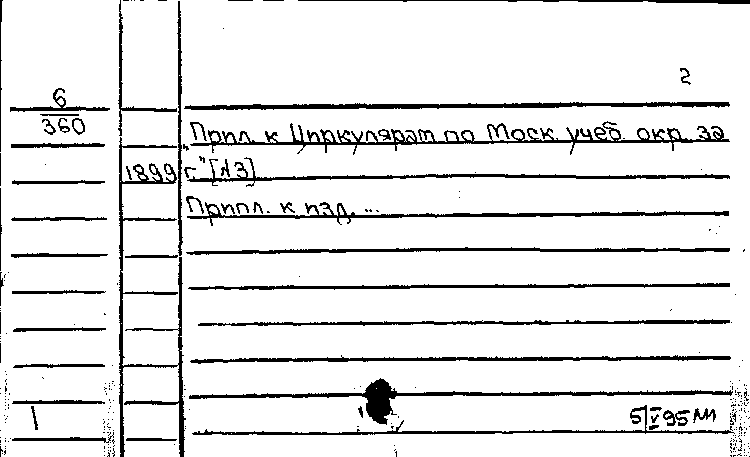 2
6
360
"Прил. к Циркулярам по Моск. учеб. окр. за
1899 г." [№3]
Припл. к изд. ...
1
5/V 95